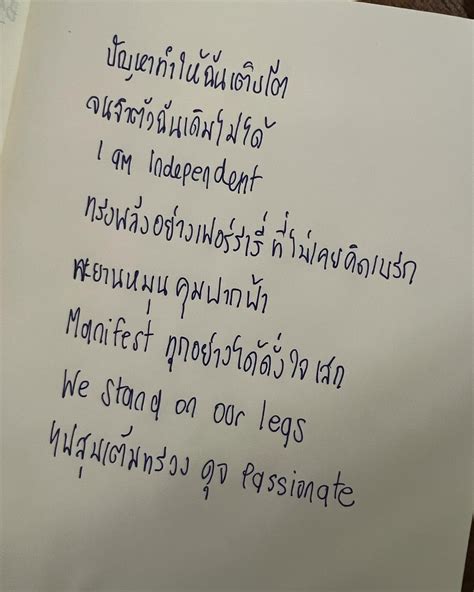 ปัญหาทำให้ฉันเติบโต
จนจำตัวฉันเดิมไม่ได้
I am independent
ทรงพลังอย่างเฟอร์รารี่ ที่ไม่เคยคิดเบรก
ทะยานหมุนคุมฟากฟ้า
Manifest ทุกอย่างได้ดั่งใจเสก
We stand on our legs
ไฟสุมเต็มทรวง ดุจ Passionate